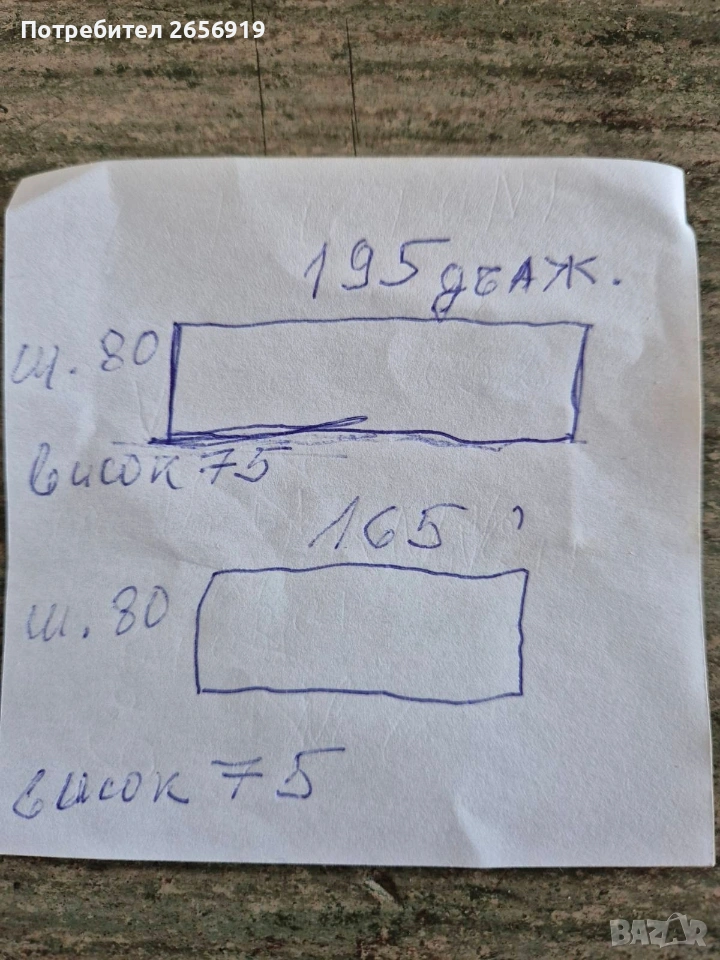 Потребител 2656919
195 дълж.
ш. 80
висок 75
165
ш. 80
висок 75
BAZAR